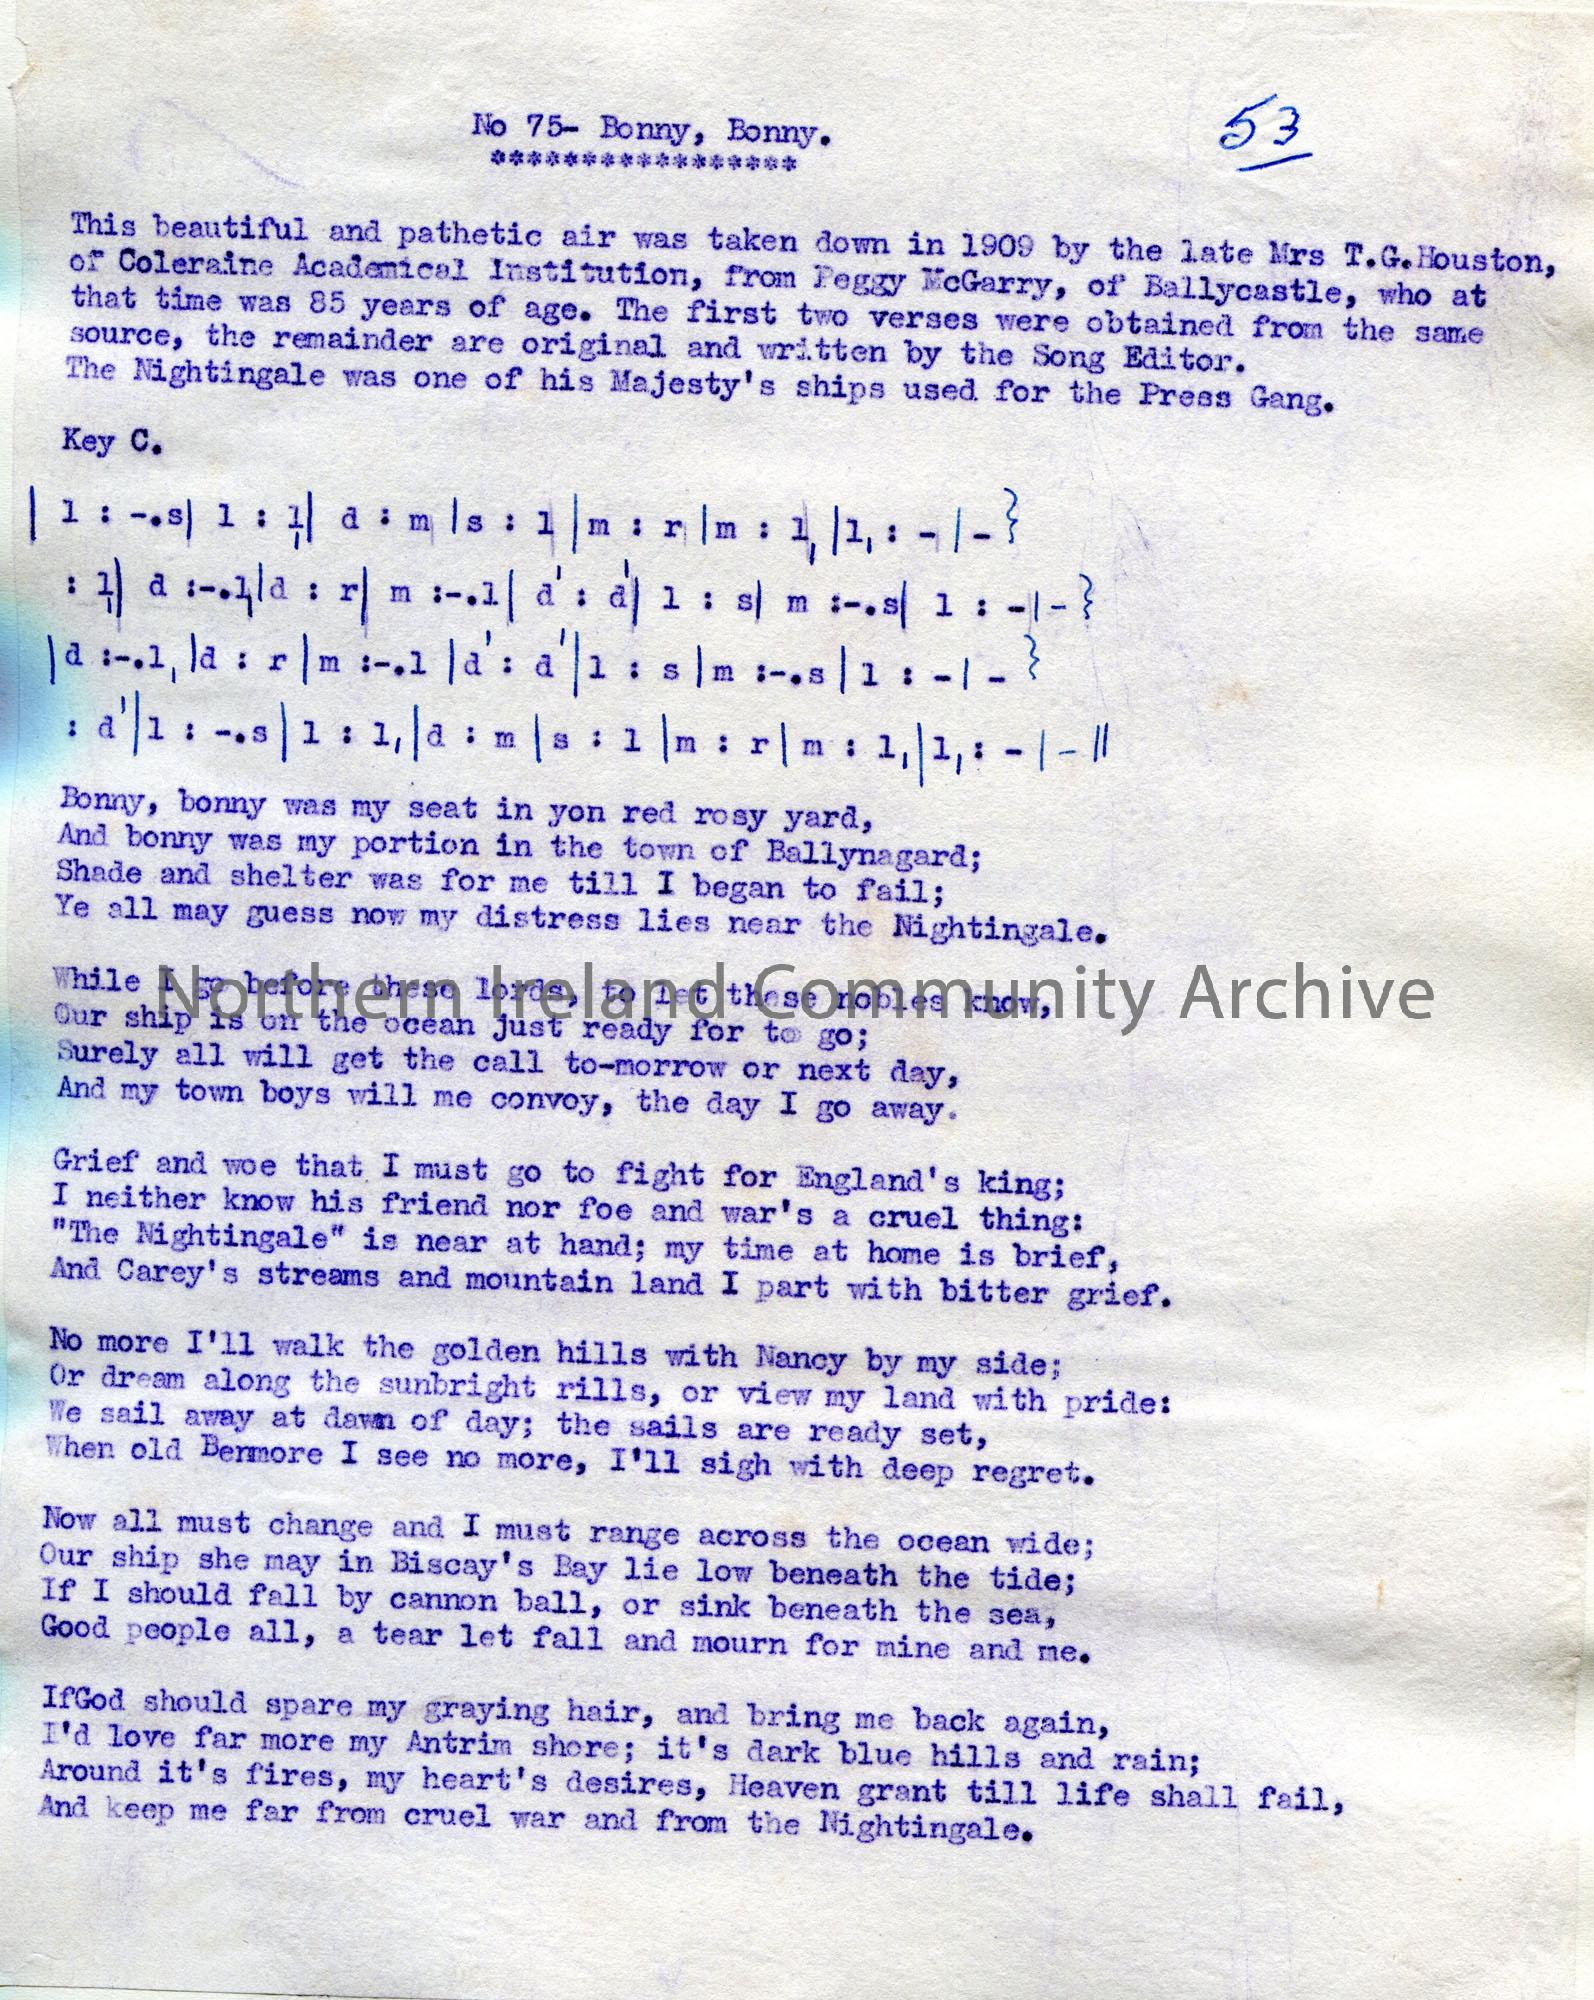 No 75- Bonny, Bonny.
53
*****************
This beautiful and pathetic air was taken down in 1909 by the late Mrs T.G.Houston,
of Coleraine Academical Institution, from Peggy McGarry, of Ballycastle, who at
that time was 85 years of age. The first two verses were obtained from the same
source, the remainder are original and written by the Song Editor.
The Nightingale was one of his Majesty's ships used for the Press Gang.
Key C.
| l : -.s| l : l,| d : m |s : l |m : r |m : l, |l, : - | - }
: l,| d :-.l,|d : r| m :-.l| d' : d'| l : s| m :-.s| l : -| - }
|d :-.l, |d : r |m :-.l |d' : d'|l : s |m :-.s |l : - | - }
: d'|l : -.s |l : l,|d : m |s : l |m : r |m : l,|l, : - | - ||
Bonny, bonny was my seat in yon red rosy yard,
And bonny was my portion in the town of Ballynagard;
Shade and shelter was for me till I began to fail;
Ye all may guess now my distress lies near the Nightingale.
While I go before these lords, to let these nobles know,
Northern Ireland Community Archive
Our ship is on the ocean just ready for to go;
Surely all will get the call to-morrow or next day,
And my town boys will me convoy, the day I go away.
Grief and woe that I must go to fight for England's king;
I neither know his friend nor foe and war's a cruel thing:
"The Nightingale" is near at hand; my time at home is brief,
And Carey's streams and mountain land I part with bitter grief.
No more I'll walk the golden hills with Nancy by my side;
Or dream along the sunbright rills, or view my land with pride:
We sail away at dawn of day; the sails are ready set,
When old Benmore I see no more, I'll sigh with deep regret.
Now all must change and I must range across the ocean wide;
Our ship she may in Biscay's Bay lie low beneath the tide;
If I should fall by cannon ball, or sink beneath the sea,
Good people all, a tear let fall and mourn for mine and me.
IfGod should spare my graying hair, and bring me back again,
I'd love far more my Antrim shore; it's dark blue hills and rain;
Around it's fires, my heart's desires, Heaven grant till life shall fail,
And keep me far from cruel war and from the Nightingale.